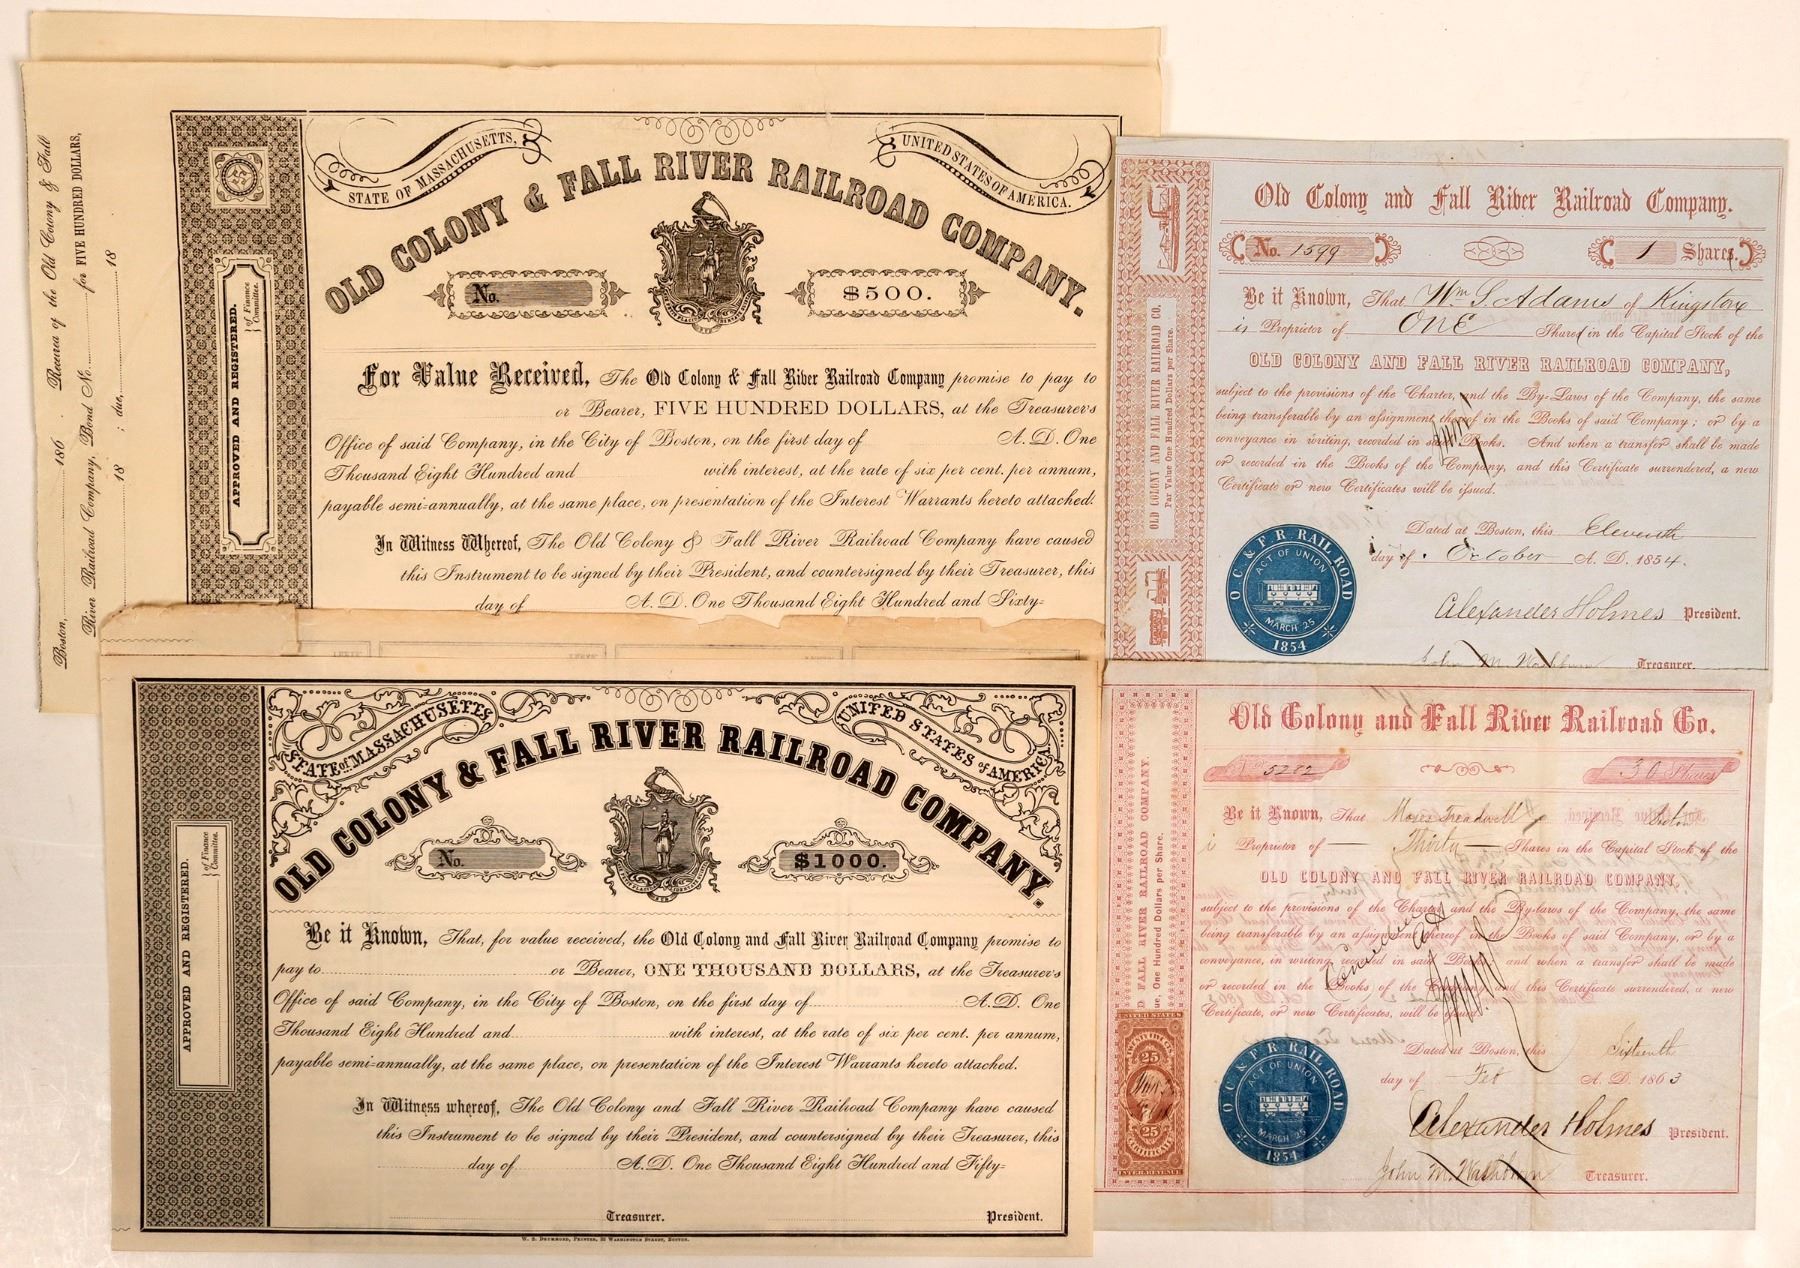 Boston, 186 . Received of the Old Colony & Fall
River Railroad Company, Bond No. for FIVE HUNDRED DOLLARS,
18 ; due, 18
APPROVED AND REGISTERED.
of Finance
Committee.
STATE OF MASSACHUSETTS,
UNITED STATES OF AMERICA.
OLD COLONY & FALL RIVER RAILROAD COMPANY.
No.
$500.
For Value Received, The Old Colony & Fall River Railroad Company promise to pay to
or Bearer, FIVE HUNDRED DOLLARS, at the Treasurer's
Office of said Company, in the City of Boston, on the first day of A. D. One
Thousand Eight Hundred and with interest, at the rate of six per cent. per annum,
payable semi-annually, at the same place, on presentation of the Interest Warrants hereto attached.
In Witness Whereof, The Old Colony & Fall River Railroad Company have caused
this Instrument to be signed by their President, and countersigned by their Treasurer, this
day of A. D. One Thousand Eight Hundred and Sixty-
OLD COLONY AND FALL RIVER RAILROAD CO.
Par Value One Hundred Dollars per Share.
Old Colony and Fall River Railroad Company.
No. 1599
1 Shares.
Be it Known, That Wm S. Adams of Kingston
is Proprietor of ONE Shares in the Capital Stock of the
OLD COLONY AND FALL RIVER RAILROAD COMPANY,
subject to the provisions of the Charter, and the By-Laws of the Company, the same
being transferable by an assignment thereof in the Books of said Company; or by a
conveyance in writing, recorded in said Books. And when a transfer shall be made
or recorded in the Books of the Company, and this Certificate surrendered, a new
Certificate or new Certificates will be issued.
Dated at Boston, this Eleventh
day of October A. D. 1854.
O. C. & F. R. RAIL ROAD
ACT OF UNION
MARCH 25
1854
Alexander Holmes President.
John M. Washburn Treasurer.
APPROVED AND REGISTERED.
of Finance
Committee.
STATE of MASSACHUSETTS
UNITED STATES of AMERICA
OLD COLONY & FALL RIVER RAILROAD COMPANY.
No.
$1000.
Be it Known, That, for value received, the Old Colony and Fall River Railroad Company promise to
pay to or Bearer, ONE THOUSAND DOLLARS, at the Treasurer's
Office of said Company, in the City of Boston, on the first day of A. D. One
Thousand Eight Hundred and with interest, at the rate of six per cent. per annum,
payable semi-annually, at the same place, on presentation of the Interest Warrants hereto attached.
In Witness whereof, The Old Colony and Fall River Railroad Company have caused
this Instrument to be signed by their President, and countersigned by their Treasurer, this
day of A. D. One Thousand Eight Hundred and Fifty-
Treasurer. President.
W. S. Drummond, Printer, Washington Street, Boston.
D FALL RIVER RAILROAD COMPANY.
ue, One Hundred Dollars per Share.
Old Colony and Fall River Railroad Co.
5282
30 Shares
Be it Known, That Moses Treadwell of
Proprietor of Thirty Shares in the Capital Stock of the
OLD COLONY AND FALL RIVER RAILROAD COMPANY,
subject to the provisions of the Charter and the By-laws of the Company, the same
being transferable by an assignment thereof in the Books of said Company, or by a
conveyance, in writing, recorded in said Books; and when a transfer shall be made
or recorded in the Books of the Company, and this Certificate surrendered, a new
Certificate, or new Certificates, will be issued.
Dated at Boston, this Sixteenth
day of Feb A. D. 1863
UNITED STATES
25
25
CERTIFICATE
INTER.REVENUE
O. C. & F. R. RAIL ROAD
ACT OF UNION
MARCH 25
1854
Alexander Holmes President.
John M. Washburn Treasurer.